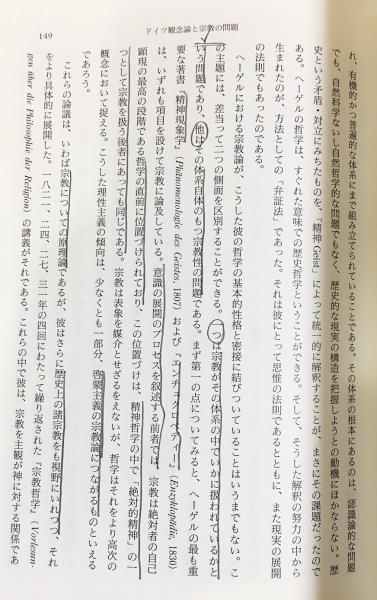 ドイツ観念論と宗教の問題
149
れ、有機的かつ普遍的な体系にまで組み立てられていることである。その体系の根本にあるのは、認識論的な問題
でも、自然科学ないし自然哲学的な問題でもなく、歴史的な現実の構造を把握しようとの動機にほかならない。歴
史という矛盾・対立にみちたものを、「精神 Geist」によって統一的に解釈することが、まさにその課題だったので
ある。ヘーゲルの哲学は、すぐれた意味での歴史哲学ということができる。そして、そうした解釈の努力の中から
生まれたのが、方法としての「弁証法」であった。それは彼にとって思惟の法則であるとともに、また現実の展開
の法則でもあったのである。
ヘーゲルにおける宗教論が、こうした彼の哲学の基本的性格と密接に結びついていることはいうまでもない。こ
の主題には、差当って二つの側面を区別することができる。一つは宗教がその体系の中でいかに扱われているかと
いう問題であり、他はその体系自体のもつ宗教性の問題である。まず第一の点についてみると、ヘーゲルの最も重
要な著書『精神現象学』(Phänomenologie des Geistes, 1807) および『エンチュクロペディー』(Enzyklopädie, 1830)
は、いずれも項目を設けて宗教に論及している。意識の展開のプロセスを叙述する前者では、宗教は絶対者の自己
顕現の最高の段階である哲学の直前に位置づけられており、この位置づけは、精神哲学の中で「絶対的精神」の一
つとして宗教を扱う後者にあっても同じである。宗教は表象を媒介とせざるをえないが、哲学はそれをより高次の
概念において捉える。こうした理性主義の傾向は、少なくとも一部分、啓蒙主義の宗教論につながるものといえる
であろう。
これらの論議は、いわば宗教についての原理論であるが、彼はさらに歴史上の諸宗教をも視野にいれつつ、それ
をより具体的に展開した。一八二一、二四、二七、三一年の四回にわたって繰り返された『宗教哲学』(Vorlesun-
gen über die Philosophie der Religion) の講義がそれである。これらの中で彼は、宗教を主観が神に対する関係であ